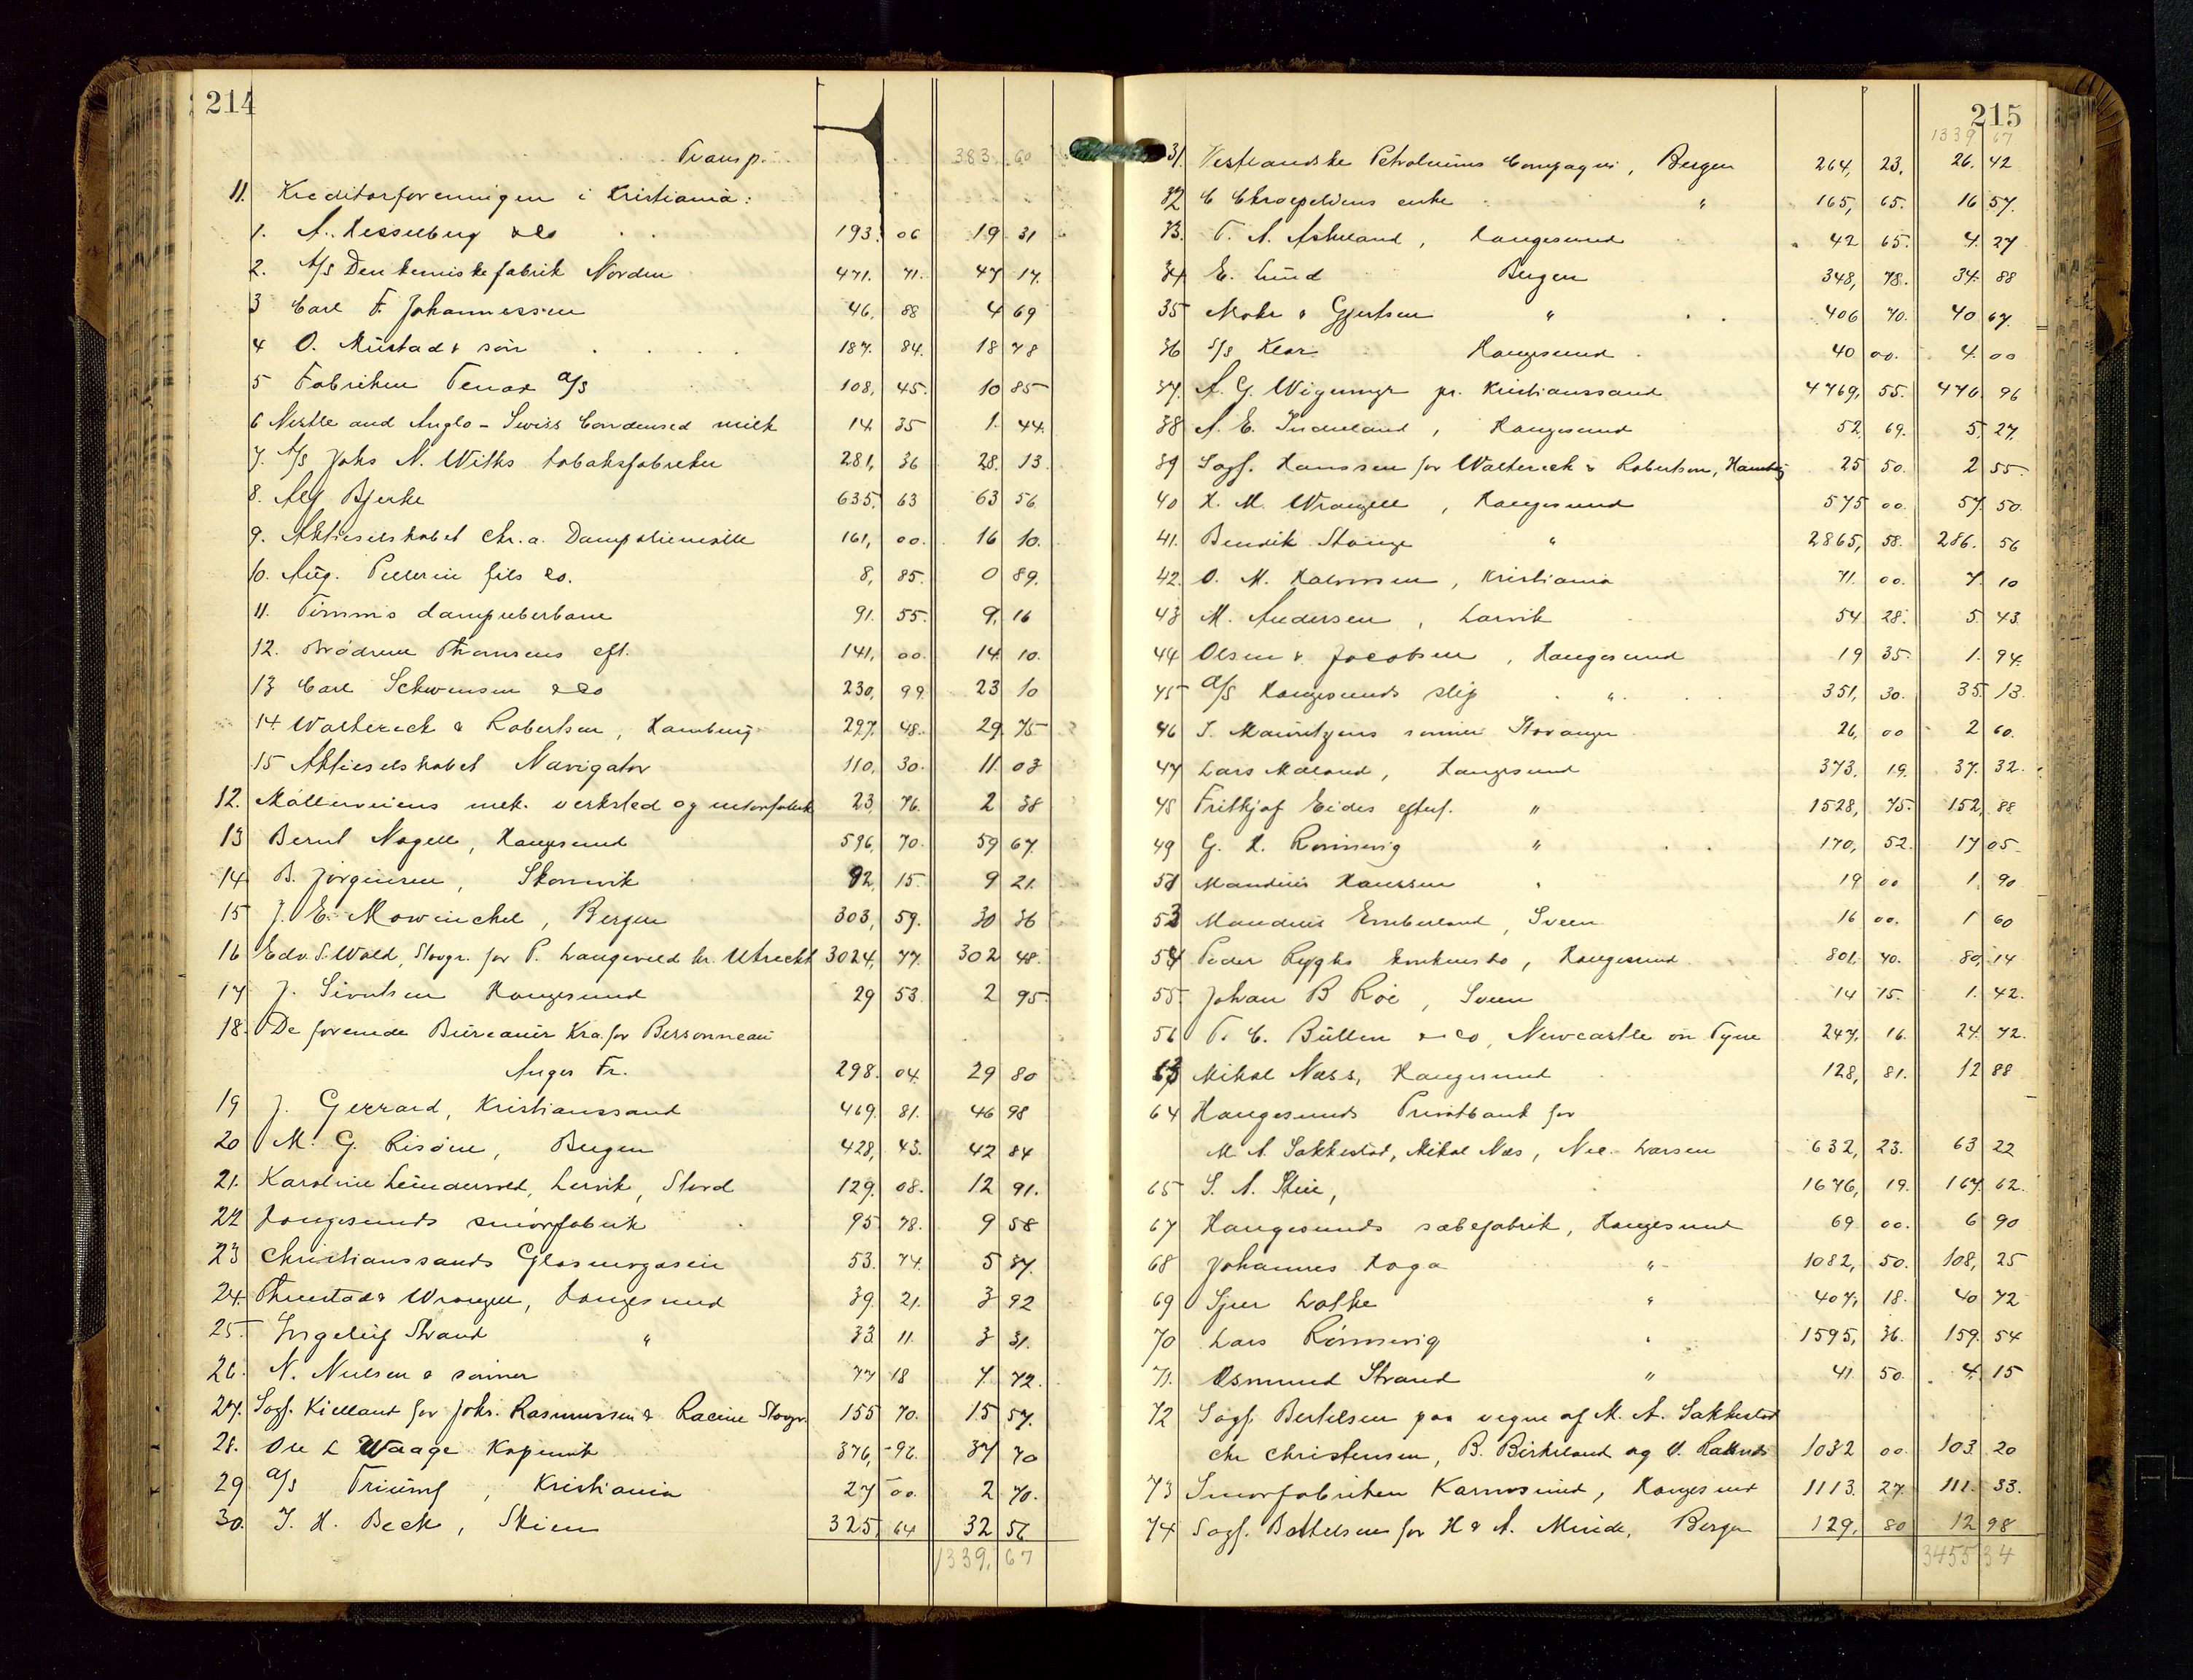 214
Transp. 383. 60
11. Kreditorforeningen i Kristiania:
1. A. Hesselberg & Co 193. 06 19 31
2. A/S Den kemiske fabrik Norden 471. 71. 47 17.
3 Carl F. Johannessen 46, 88 4 69
4 O. Mustad & sön 187. 84. 18 78
5 Fabriken Tenax A/S 108, 45. 10 85
6 Nestle and Anglo-Swiss Condensed milk 14 35 1. 44.
7. A/S Johs N. Withs tobaksfabriker 281, 36 28. 13.
8. Alf Bjerke 635, 63 63 56
9. Aktieselskabet Chr.a. Dampoliemölle 161, 00. 16 10.
10. Aug. Pellerin fils Co. 8, 85. 0 89.
11. Timms dampreberbane 91. 55. 9, 16
12. Brødrene Thomsens eft. 141, 00. 14 10.
13 Carl Schwensen & Co 230, 99 23 10
14. Waltereck & Robertson, Hamburg 297. 48. 29. 75
15 Aktieselskabet Navigator 110, 30. 11. 03
12. Möllerveiens mek. verksted og motorfabrik 23, 76. 2 38
13 Bernt Nagell, Haugesund 596, 70. 59 67.
14 B. Jörgensen, Skonevik 92, 15. 9 21.
15 J. E. Mowinckel, Bergen 303, 59. 30 36
16 Edv. S. Wold, Stavgr. for P. Langeveld hr. Utrecht 3024, 77. 302 48.
17 J. Sivertsen Haugesund 29 53. 2 95.
18. De forenede Bureauer Kra. for Bessonneau
Angers Fr. 298. 04. 29 80
19 J. Gerrard, Kristianssand 469. 81. 46 98
20 M. G. Risöen, Bergen 428, 43. 42 84
21. Karoline Leündervold, Lervik, Stord 129. 08. 12 91.
22 Haugesunds smörfabrik 95 78. 9 58
23 Christianssands Glasmagasin 53. 74. 5 37.
24. Thuestad & Wrangell, Haugesund 39. 21. 3 92
25. Ingeleif Strand " 33. 11. 3 31.
26. N. Nielsen & sönner 77 18 7. 72.
27. Sagf. Kielland for Johs. Rasmussen & Racine Stavgr. 155 70. 15 57.
28. Ole L Waage Kopervik 376, 96. 37 70
29 A/S Triumf, Kristiania 27 00. 2 70.
30. J. H. Beck, Skien 325, 64 32 56
1339, 67
215
1339 67
31. Vestlandske Petroleums Compagni, Bergen 264, 23, 26. 42
32 C Ekroepeliens enke " 165, 65. 16 57.
33. T. A. Askeland, Haugesund 42 65. 4. 27
34 E. Lund Bergen 348, 78. 34. 88
35 Mohr & Gjertsen " 406 70. 40 67.
36 S/S Klar Haugesund 40 00. 4. 00
37. A. G. Wigemyr pr. Kristianssand 4769, 55. 476. 96
38 A. E. Indreland, Haugesund 52, 69. 5, 27.
39 Sagf. Hanssen for Waltereck & Robertson, Hambg 25 50. 2 55
40 H. M. Wrangell, Haugesund 575 00. 57. 50.
41. Bendik Stange " 2865, 58. 286. 56
42. O. M. Halvorsen, Kristiania 71. 00. 7. 10
43 M. Andersen, Larvik 54 28. 5. 43
44 Olsen & Jacobsen, Haugesund 19 35. 1. 94.
45 A/S Haugesunds slip " 351, 30. 35. 13.
46 S. Mauritzens sönner Stavanger 26, 00 2 60.
47 Lars Mæland, Haugesund 373. 19. 37. 32.
48 Fritjof Eides efterf. " 1528, 75. 152, 88
49 G. H. Rönnevig " 170, 52. 17 05
51 Mandius Hanssen " 19 00 1. 90
53 Mandius Emberland, Sveen 16 00. 1 60
54 Peder Ryghs konkursbo, Haugesund 801. 40. 80, 14
55. Johan B Röe, Sveen 14 15. 1. 42.
56 T. C. Bullen & Co, Newcastle on Tyne 247, 16. 24. 72.
63 Mikal Næss, Haugesund 128, 81. 12 88
64 Haugesunds Privatbank for
M. A. Sakkestad, Mikal Næs, Nic. Larsen 632, 23. 63 22
65 S. A. Steie, 1676, 19. 167. 62.
67 Haugesunds sæbefabrik, Haugesund 69 00. 6 90
68 Johannes Haga " 1082, 50. 108, 25
69 Sjur Lothe " 407, 18. 40 72
70 Lars Rönnevig " 1595, 36. 159. 54
71. Osmund Strand " 41 50. 4. 15
72 Sagf. Bertelsen paa vegne af M. A. Sakkestad
Chr Christensen, B. Birkeland og 1032 00. 103 20
73 Smörfabriken Karmsund, Haugesund 1113. 27. 111. 33.
74 Sagf. Bottelsen for H & A. Minde, Bergen 129, 80 12 98
3455 34